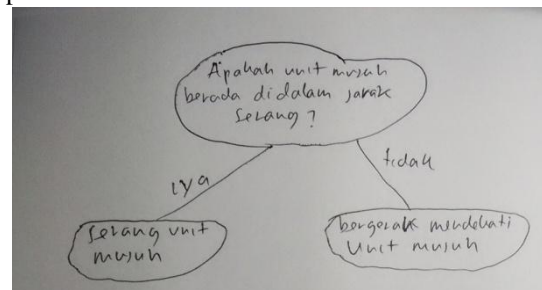 Apakah unit musuh
berada didalam jarak
serang?
iya
tidak
serang unit
musuh
bergerak mendekati
unit musuh